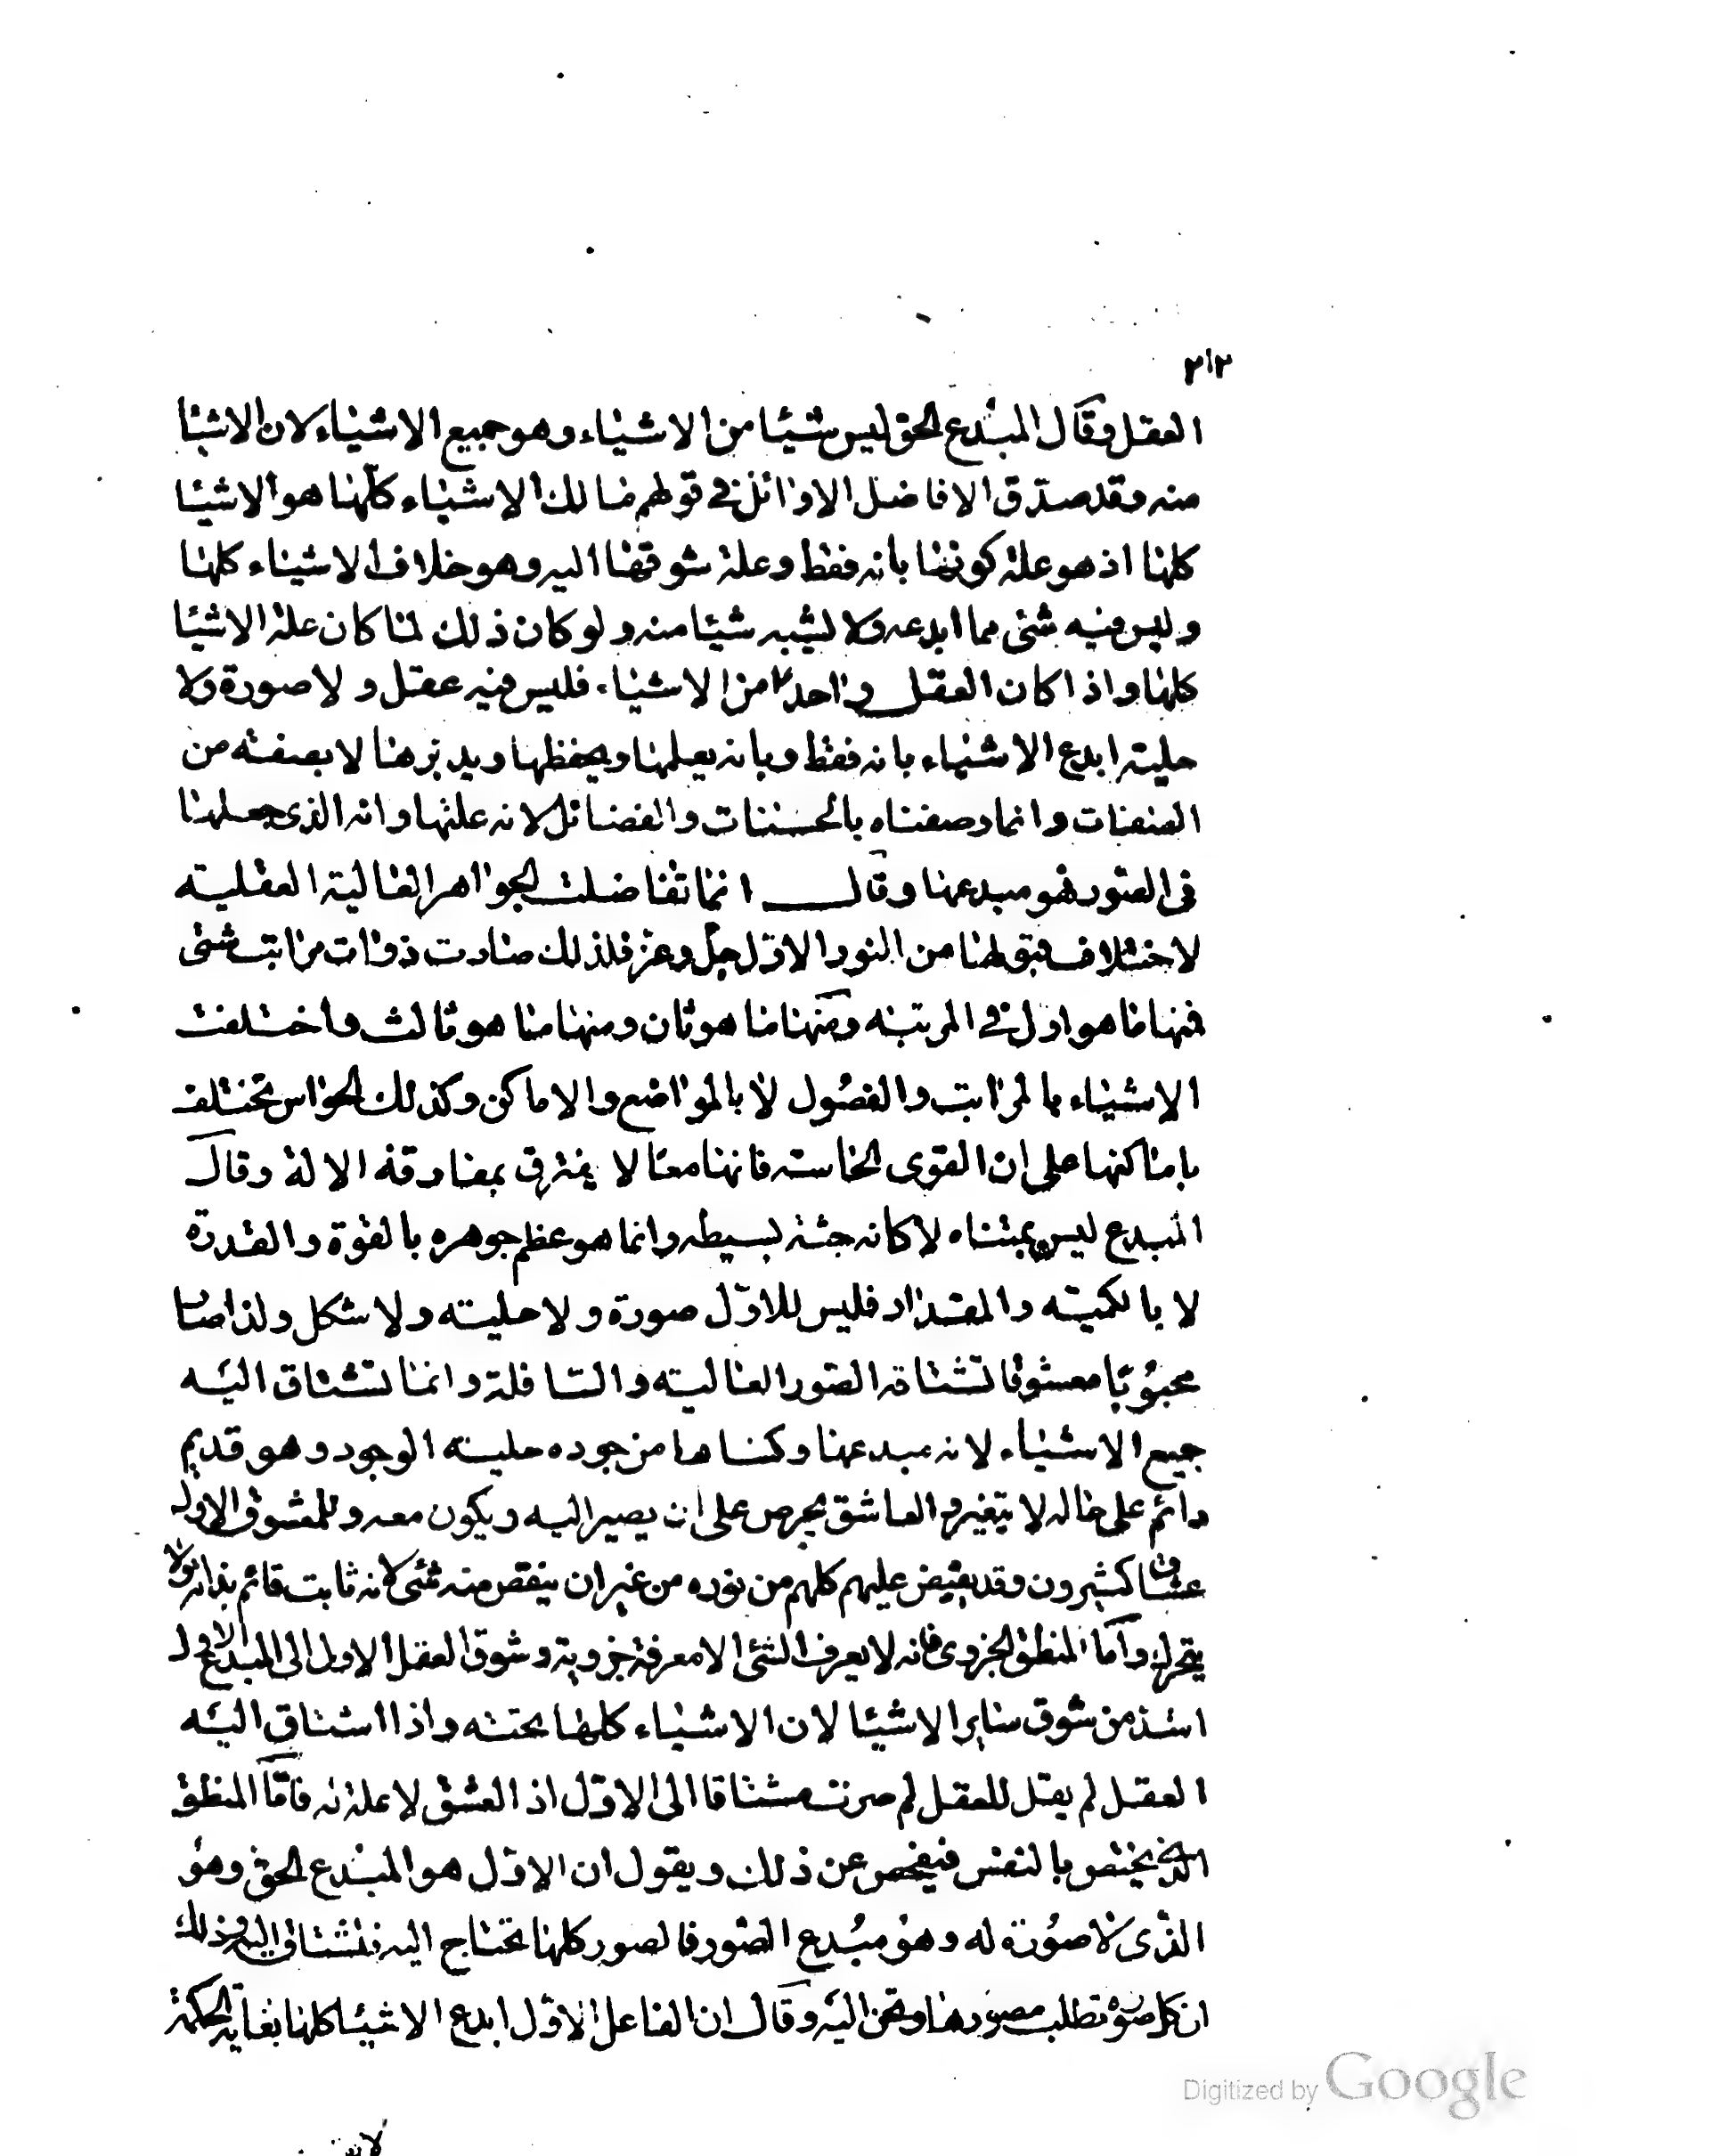 ٢١٢
العقل وقال المبدع الحق ليس شيئا من الاشياء وهو جميع الاشياء لان الاشيا
منه وقد صدق الافاضل الاوائل في قولهم مالك الاشياء كلها هو الاشيا
كلها اذ هو علة كونها بانه فقط وعلة شوقها اليه وهو خلاف الاشياء كلها
وليس فيه شئ مما ابدعه ولا يشبه شيئا منه ولو كان ذلك لما كان علة الاشيا
كلها واذا كان العقل واحدا من الاشياء فليس فيه عقل ولا صورة ولا
حلية ابدع الاشياء بانه فقط وبانه يعلمها ويحفظها ويدبرها لا بصفة من
الصفات وانما وصفناه بالحسنات والفضائل لانه علتها وانه الذى جعلها
فى الصور فهو مبدعها وقال انما تفاضلت الجواهر العالية العقلية
لاختلاف قبولها من النور الاول جل وعز فلذلك صارت ذوات مراتب شتى
فمنها ما هو اول في المرتبة ومنها ما هو ثان ومنها ما هو ثالث واختلفت
الاشياء بالمراتب والفصول لا بالمواضع والاماكن وكذلك الحواس تختلف
باماكنها على ان القوى الحاسة فانها معا لا يفترق بمفارقة الالة وقال
المبدع ليس بمتناه لا كانه جثة بسيطه وانما هو عظم جوهره بالقوة والقدرة
لا بالكمية والمقدار فليس للاول صورة ولا حلية ولا شكل ولذا صار
محبوبا معشوقا تشتاقه الصور العالية والسافلة وانما تشتاق اليه
جميع الاشياء لانه مبدعها وكساها من جوده حلية الوجود وهو قديم
دائم على حاله لا يتغير والعاشق يحرص على ان يصير اليه ويكون معه وللمعشوق الاول
عشاق كثيرون وقد يفيض عليهم كلهم من نوره من غير ان ينقص منه شئ لانه ثابت قائم بذاته لا
يتحرك واما المنطق الجزوى فانه لا يعرف الشئ الا معرفة جزوية وشوق العقل الاول الى المبدع الاول
اشد من شوق ساير الاشيا لان الاشياء كلها تحته واذا اشتاق اليه
العقل لم يقل للعقل لم صرت مشتاقا الى الاول اذ العشق لا علة له فاما المنطق
الذى يختص بالنفس فيفحص عن ذلك ويقول ان الاول هو المبدع الحق وهو
الذى لا صورة له وهو مبدع الصور فالصور كلها تحتاج اليه فتشتاق اليه وذلك
ان كل صورة تطلب مصورها وتحن اليه وقال ان الفاعل الاول ابدع الاشيا كلها بغاية الحكمة
Digitized by Google